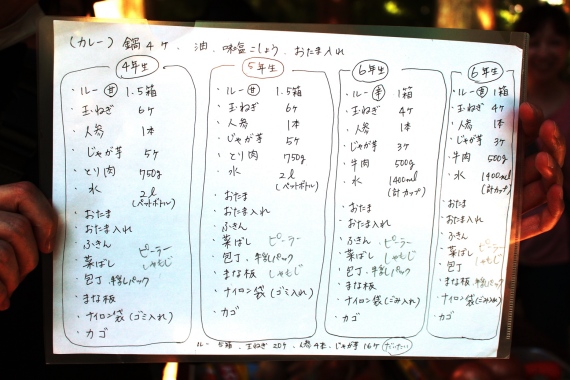 (カレー) 鍋4ヶ、油、味塩こしょう、おたま入れ
4年生
・ルー 甘 1.5箱
・玉ねぎ 6ヶ
・人参 1本
・じゃが芋 5ヶ
・とり肉 750g
・水 2ℓ
(ペットボトル)
・おたま
・おたま入れ
・ふきん
・菜ばし ピーラー
・包丁・牛乳パック しゃもじ
・まな板
・ナイロン袋(ゴミ入れ)
・カゴ
5年生
・ルー 甘 1.5箱
・玉ねぎ 6ヶ
・人参 1本
・じゃが芋 5ヶ
・とり肉 750g
・水 2ℓ
(ペットボトル)
・おたま
・おたま入れ
・ふきん
・菜ばし ピーラー
・包丁・牛乳パック
・まな板 しゃもじ
・ナイロン袋(ゴミ入れ)
・カゴ
6年生
・ルー 辛 1箱
・玉ねぎ 4ヶ
・人参 1本
・じゃが芋 3ヶ
・牛肉 500g
・水 1400ml
(計カップ)
・おたま
・おたま入れ
・ふきん ピーラー
・菜ばし しゃもじ
・包丁・牛乳パック
・まな板
・ナイロン袋(ごみ入れ)
・カゴ
6年生
・ルー 辛 1箱
・玉ねぎ 4ヶ
・人参 1本
・じゃが芋 3ヶ
・牛肉 500g
・水 1400ml
(計カップ)
・おたま
・おたま入れ
・ふきん
・菜ばし ピーラー
・包丁 しゃもじ
・まな板・牛乳パック
・ナイロン袋(ごみ入れ)
・カゴ
ルー 5箱、玉ねぎ 20ヶ、人参4本、じゃが芋 16ヶ だいたい